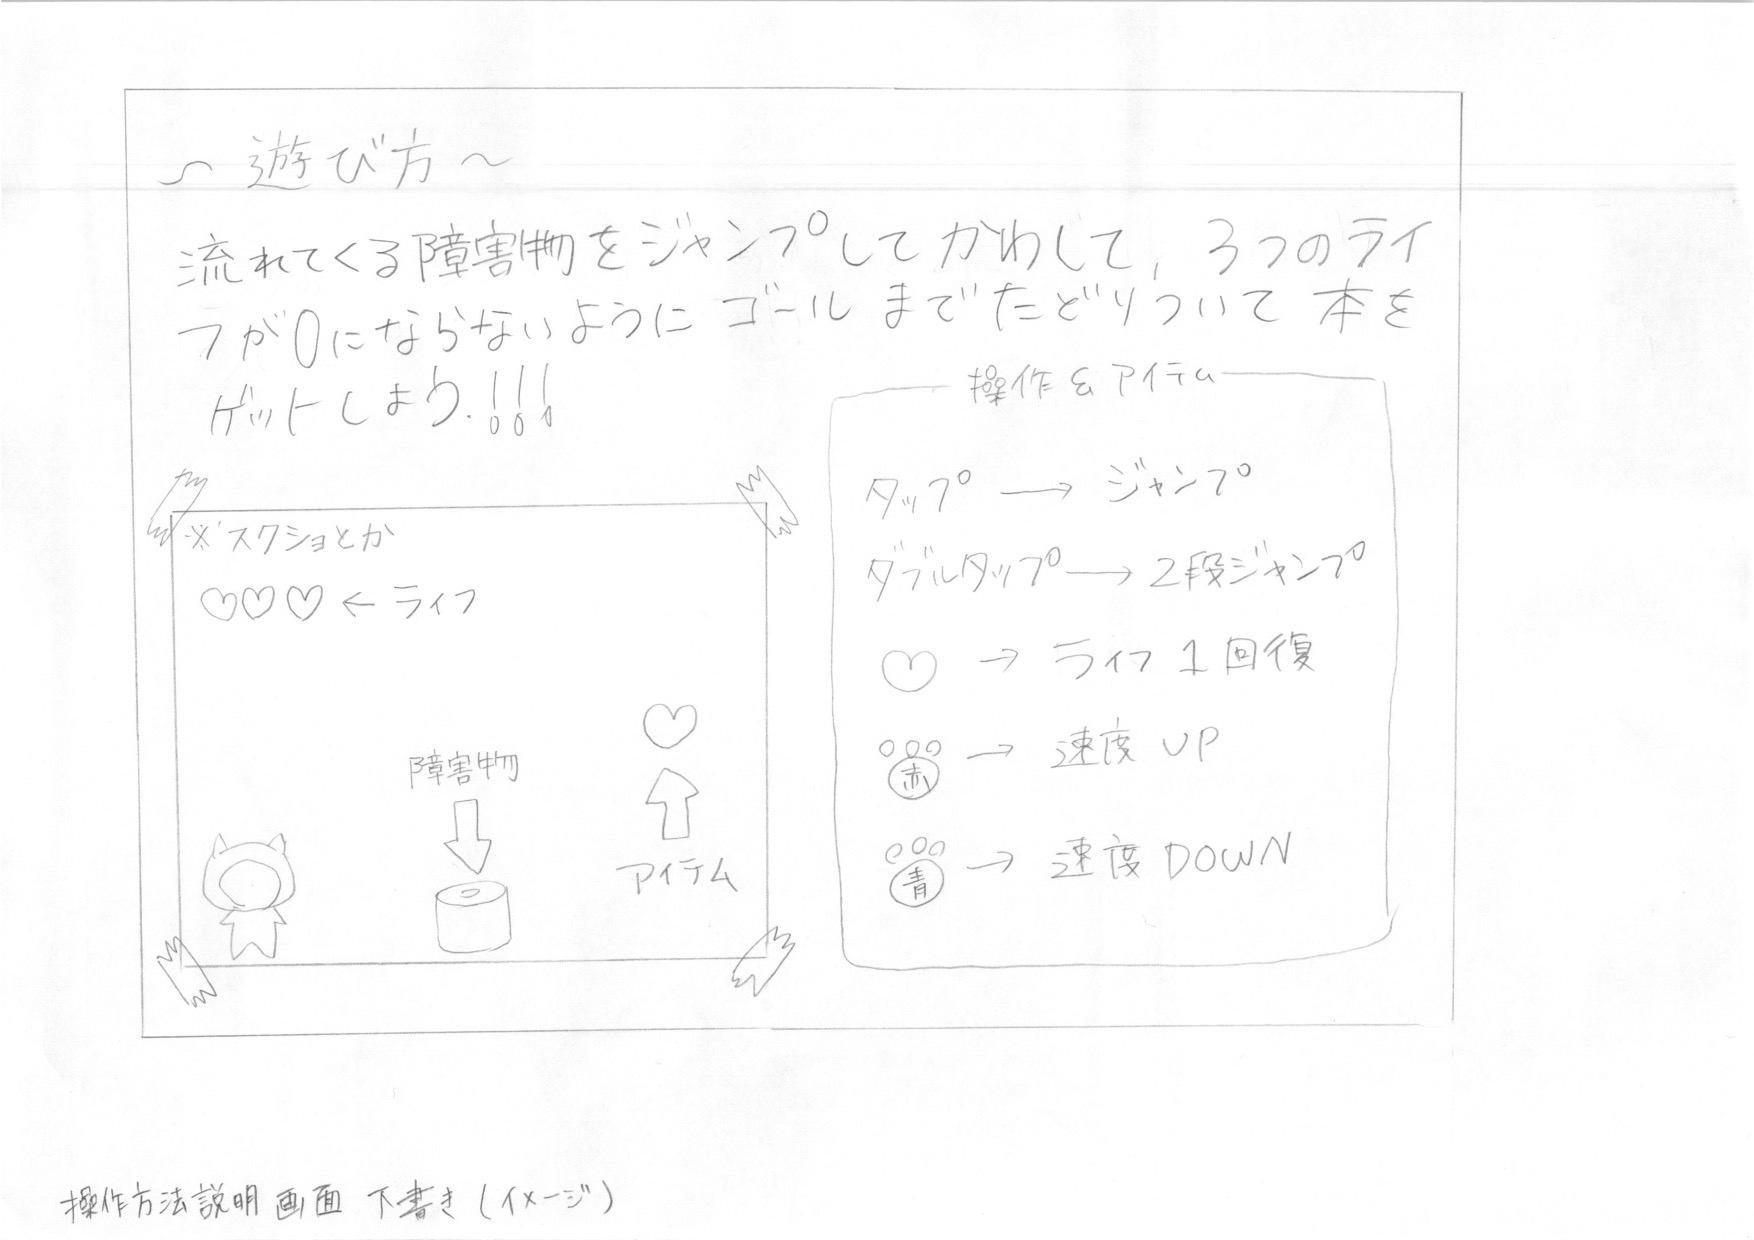 ～遊び方～
流れてくる障害物をジャンプしてかわして、3つのライ
フが0にならないように ゴールまでたどりついて 本を
ゲットしよう!!!
※スクショとか
←ライフ
障害物
アイテム
操作&アイテム
タップ→ジャンプ
ダブルタップ→2段ジャンプ
→ライフ1回復
赤→速度UP
青→速度DOWN
操作方法説明画面 下書き(イメージ)